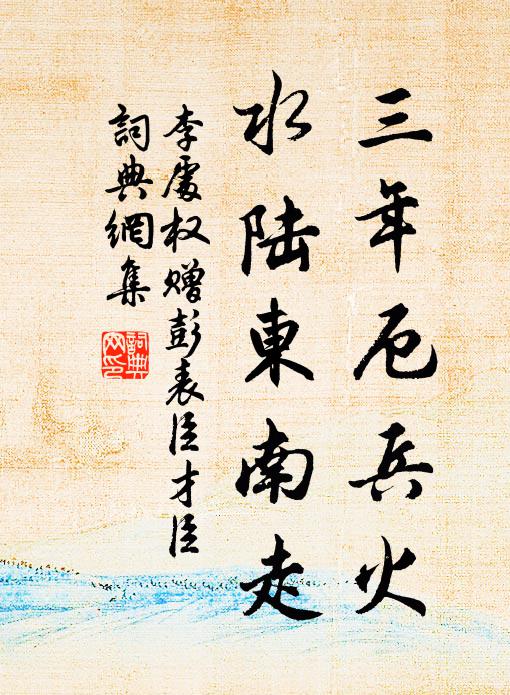 三年厄兵火
水陆東南走
李處权赠彭表臣才臣
詞典網集
詞典
网印